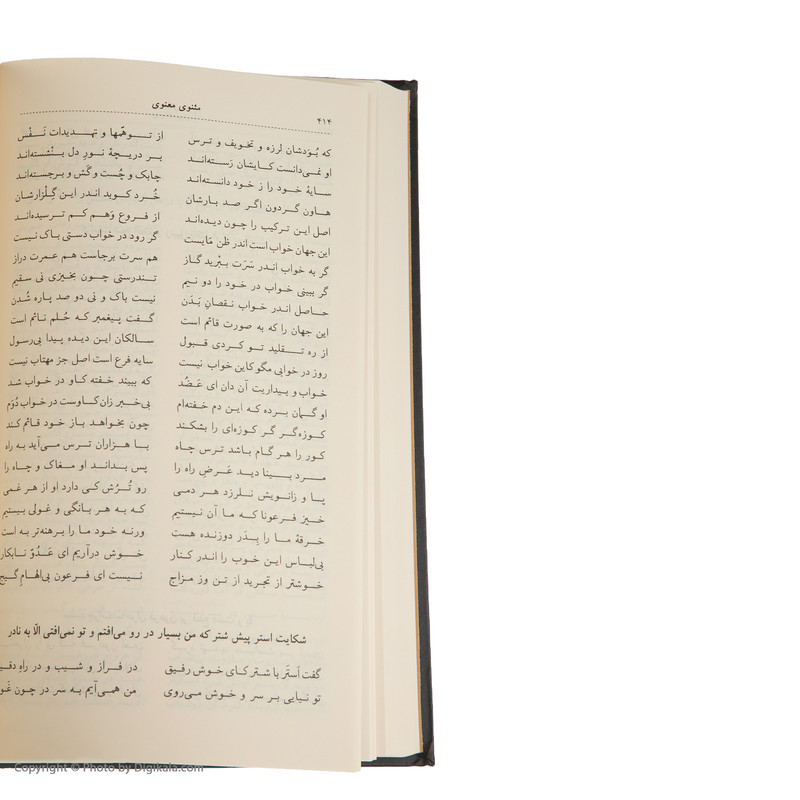 مثنوی معنوی
۴۱۴
که بُوَدشان لرزه و تخویف و ترس از توهّمها و تهدیدات نَفْس
او نمی‌دانست کایشان رَسته‌اند بر دریچهٔ نورِ دل بنْشسته‌اند
سایهٔ خود را ز خود دانسته‌اند چابک و چُست و گَش و برجسته‌اند
هاون گردون اگر صد بارشان خُرد کوبد اندر این گِلْزارشان
اصل این ترکیب را چون دیده‌اند از فروع وَهم کم ترسیده‌اند
این جهان خواب است اندر ظن مَایست گر رود در خواب دستی باک نیست
گر به خواب اندر سَرَت ببْرید گاز هم سرت برجاست هم عمرت دراز
گر ببینی خواب در خود را دو نیم تندرستی چون بخیزی نی سقیم
حاصل اندر خواب نقصانِ بَدَن نیست باک و نی دو صد پاره شُدن
این جهان را که به صورت قائم است گفت پیغمبر که حُلم نائم است
از ره تقلید تو کردی قبول سالکان این دیده پیدا بی‌رسول
روز در خوابی مگو کاین خواب نیست سایه فرع است اصل جز مهتاب نیست
خواب و بیداریت آن دان ای عَضُد که ببیند خفته کاو در خواب شد
او گمان برده که این دم خفته‌ام بی‌خبر زان کاوست در خواب دُوَم
کوزه‌گر گر کوزه‌ای را بشکند چون بخواهد باز خود قائم کند
کور را هر گام باشد ترس چاه با هزاران ترس می‌آید به راه
مرد بینا دید عَرضِ راه را پس بداند او مغاک و چاه را
پا و زانویش نلرزد هر دمی رو تُرُش کی دارد او از هر غمی
خیز فرعونا که ما آن نیستیم که به هر بانگی و غولی بیستیم
خرقهٔ ما را بِدَر دوزنده هست ورنه خود ما را برهنه‌تر به است
بی‌لباس این خوب را اندر کنار خوش درآریم ای عَدُوّ نابکار
خوشتر از تجرید از تن وز مزاج نیست ای فرعون بی‌الهامِ گیج
شکایت استر پیش شتر که من بسیار در رو می‌افتم و تو نمی‌افتی الّا به نادر
گفت اَستَر با شتر کای خوش رفیق در فراز و شیب و در راهِ
تو نیایی بر سر و خوش می‌روی من همی‌آیم به سر در چون
Copyright © Photo by Digikala.com